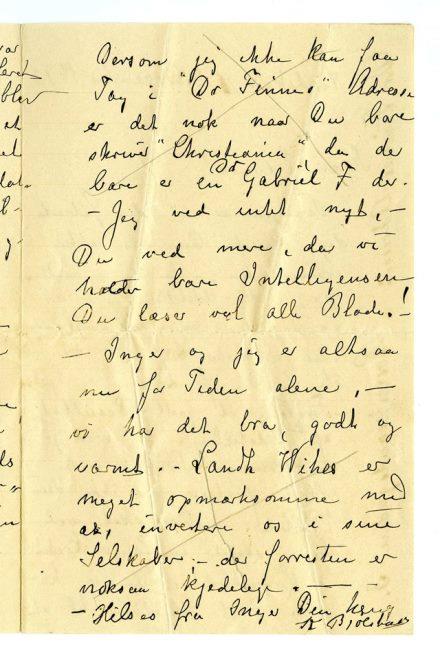 Dersom jeg ikke kan faa
Tag i "Dr Finnes" Adresse
er det nok naar Du bare
skriver "Christiania", da der
bare er en Dr Gabriel F der.
- Jeg ved intet nyt, -
Du ved mere, da vi
holder bare Intelligensen
Du læser vel alle Blade!
- Inger og jeg er altsaa
nu for Tiden alene, -
vi har det bra, godt og
varmt. - Landh Wihes er
meget opmærksomme med
at invertere os i sine
Selskaber, - der forresten er
noksaa kjedelige. -
- Hilses fra Inger Din